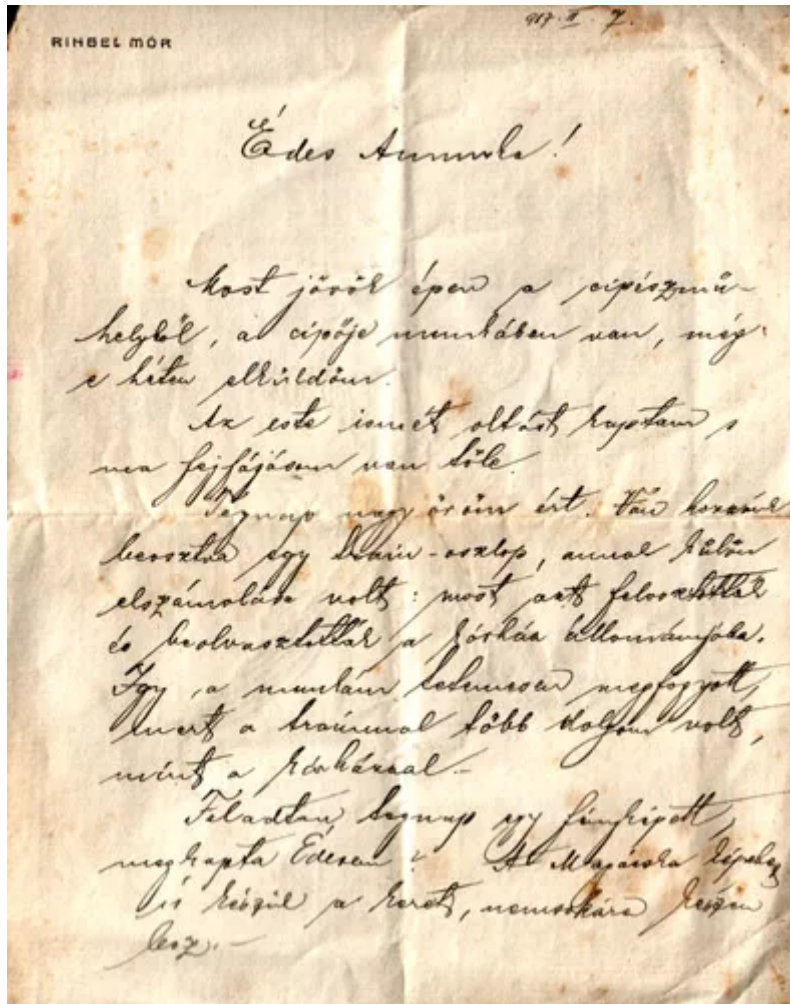 RINBEL MÓR
917. II. 7.
Édes Annuska!
Most jövök épen a cipészmű-
helyből, a cipője munkában van, még
e héten elküldöm.
Az este ismét oltást kaptam s
ma fejfájásom van tőle.
Tegnap nagy öröm ért. Van hozzánk
beosztva egy train-oszlop, annak külön
elszámolása volt: most azt feloszlatták
és beolvasztották a kórház állományába.
Így, a munkám tetemesen megfogyott,
mert a trainnal több dolgom volt,
mint a kórházzal.-
Feladtam tegnap egy fényképett,
megkapta Édesem? A Magácska képéhez
is készül a keret, nemsokára készen
lesz.-